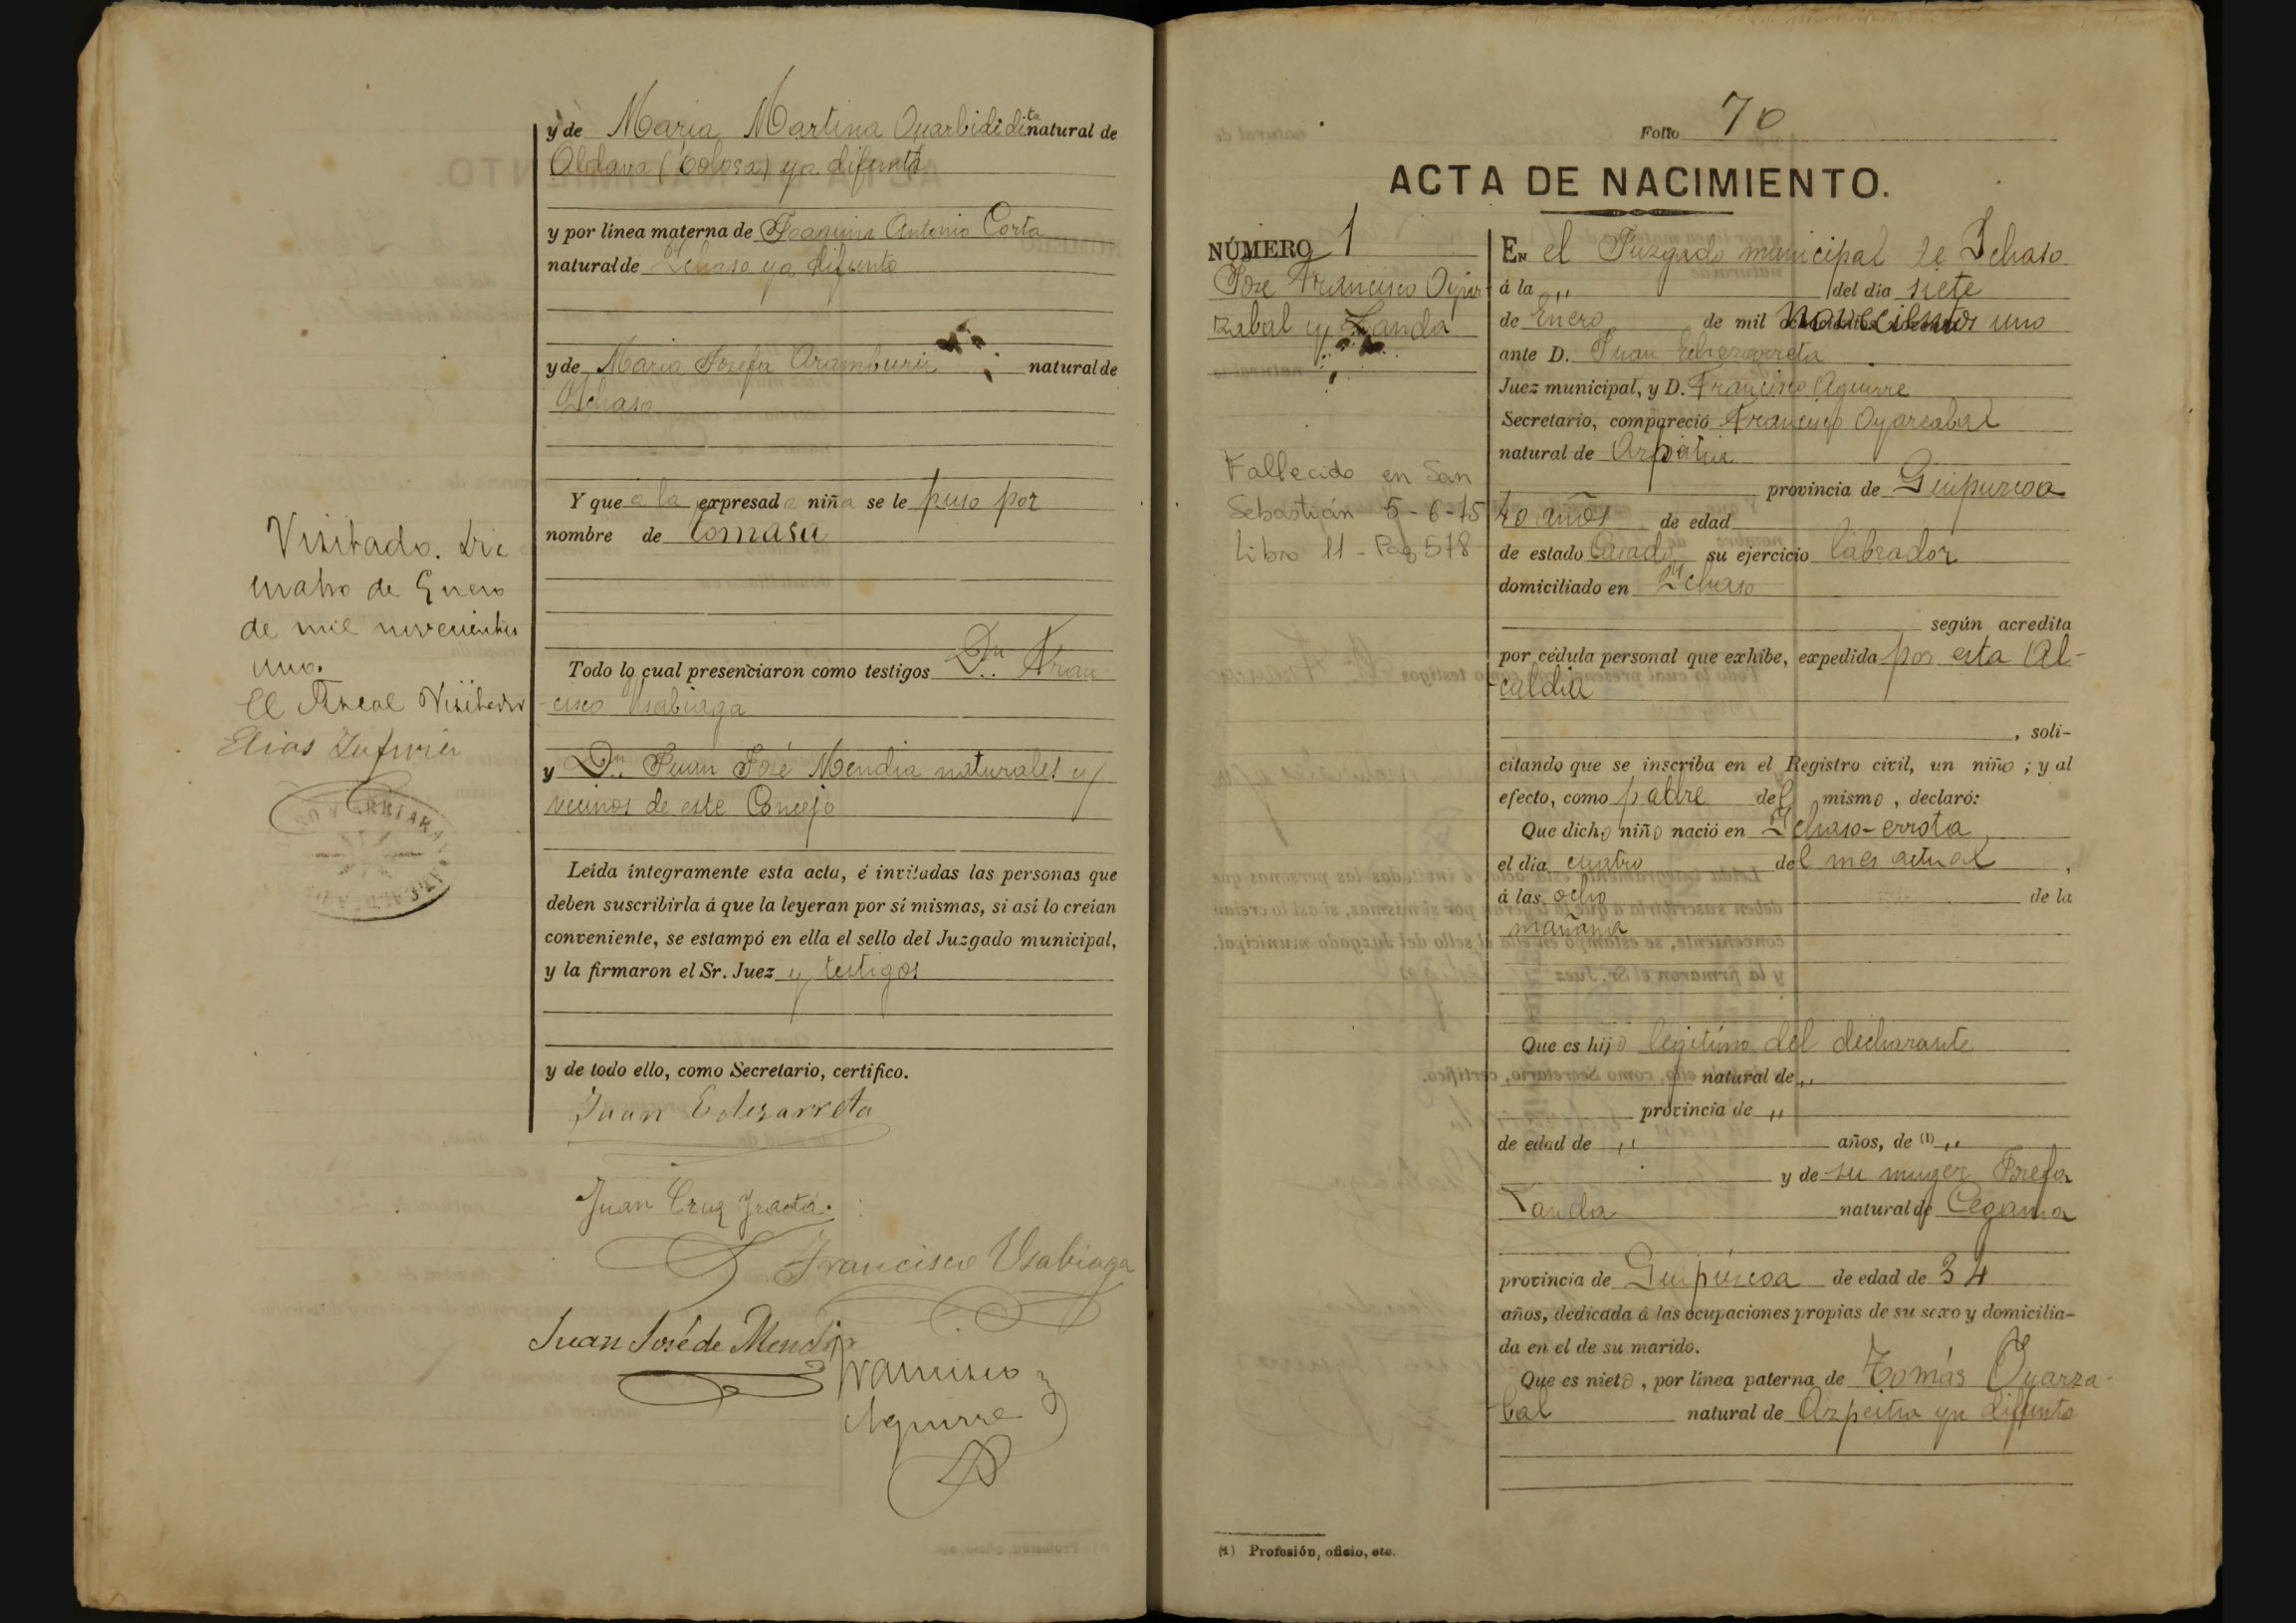 y de Maria Martina Oyarbide dita natural de
Aldava (Tolosa) ya difunta
y por línea materna de Joaquina Antonio Corta
natural de Ychaso ya difunto
y de Maria Josefa Aramburu natural de
Ychaso
Y que a la expresada niña se le puso por
nombre de Tomasa
Todo lo cual presenciaron como testigos Dn. Fran
-cisco Usabiaga
y Dn. Juan José Mendia naturales y
vecinos de este Concejo
Leída íntegramente esta acta, é invitadas las personas que
deben suscribirla á que la leyeran por sí mismas, si así lo creían
conveniente, se estampó en ella el sello del Juzgado municipal,
y la firmaron el Sr. Juez y testigos
y de todo ello, como Secretario, certifico.
Juan Echezarreta
Juan Cruz
Francisco Usabiaga
Juan José de Mendia
Francisco
Aguirre
Visitado.
de Enero
de mil novecientos
uno.
El Fiscal Visitador
Elias
Folio 70
ACTA DE NACIMIENTO.
NÚMERO 1
José Francisco Oyar
zabal y Landa
Fallecido en San
Sebastián 5-6-75
Libro 11 - Pag 578
EN el Juzgado municipal de Ichaso
á la " del día siete
de Enero de mil novecientos uno
ante D. Juan Echezarreta
Juez municipal, y D. Francisco Aguirre
Secretario, compareció Francisco Oyarzabal
natural de Azpeitia
provincia de Guipuzcoa
40 años de edad
de estado Casado su ejercicio labrador
domiciliado en Ychaso
según acredita
por cédula personal que exhibe, expedida por esta Al-
-caldia
, soli-
citando que se inscriba en el Registro civil, un niño ; y al
efecto, como padre del mismo , declaró:
Que dicho niño nació en Ychaso-errota
el día cuatro del mes actual ,
á las ocho de la
mañana
Que es hijo legitimo del declarante
natural de "
provincia de "
de edad de " años, de (1) "
y de su muger Josefa
Landa natural de Cegama
provincia de Guipúzcoa de edad de 34
años, dedicada á las ocupaciones propias de su sexo y domicilia-
da en el de su marido.
Que es nieto , por línea paterna de Tomás Oyarza-
-bal natural de Azpeitia ya difunto
(1) Profesión, oficio, etc.